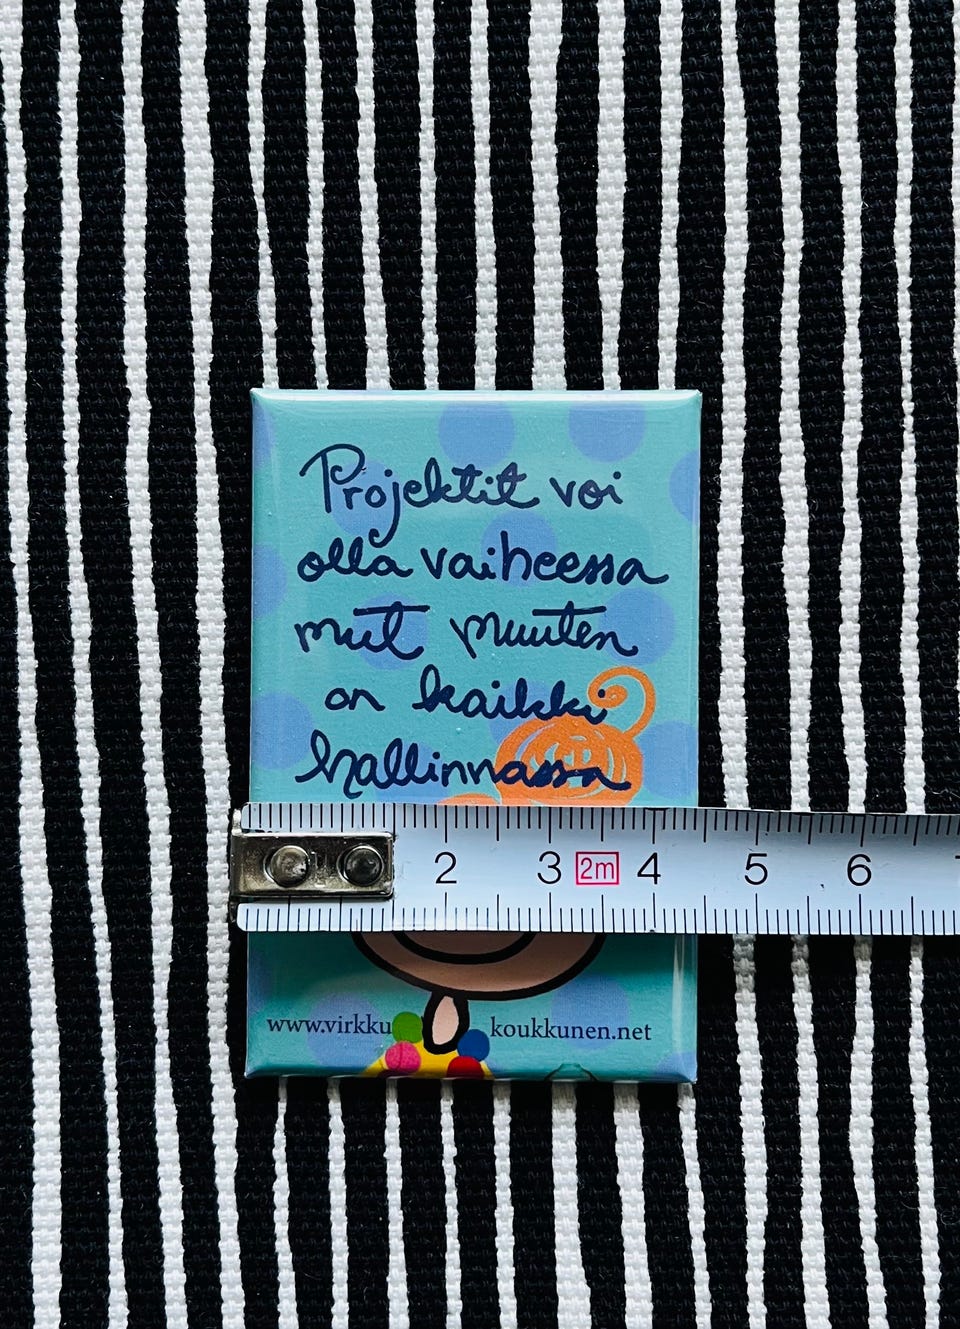 Projektit voi
olla vaiheessa
mut muuten
on kaikki
hallinnassa
2 3 2m 4 5 6
www.virkku koukkunen.net